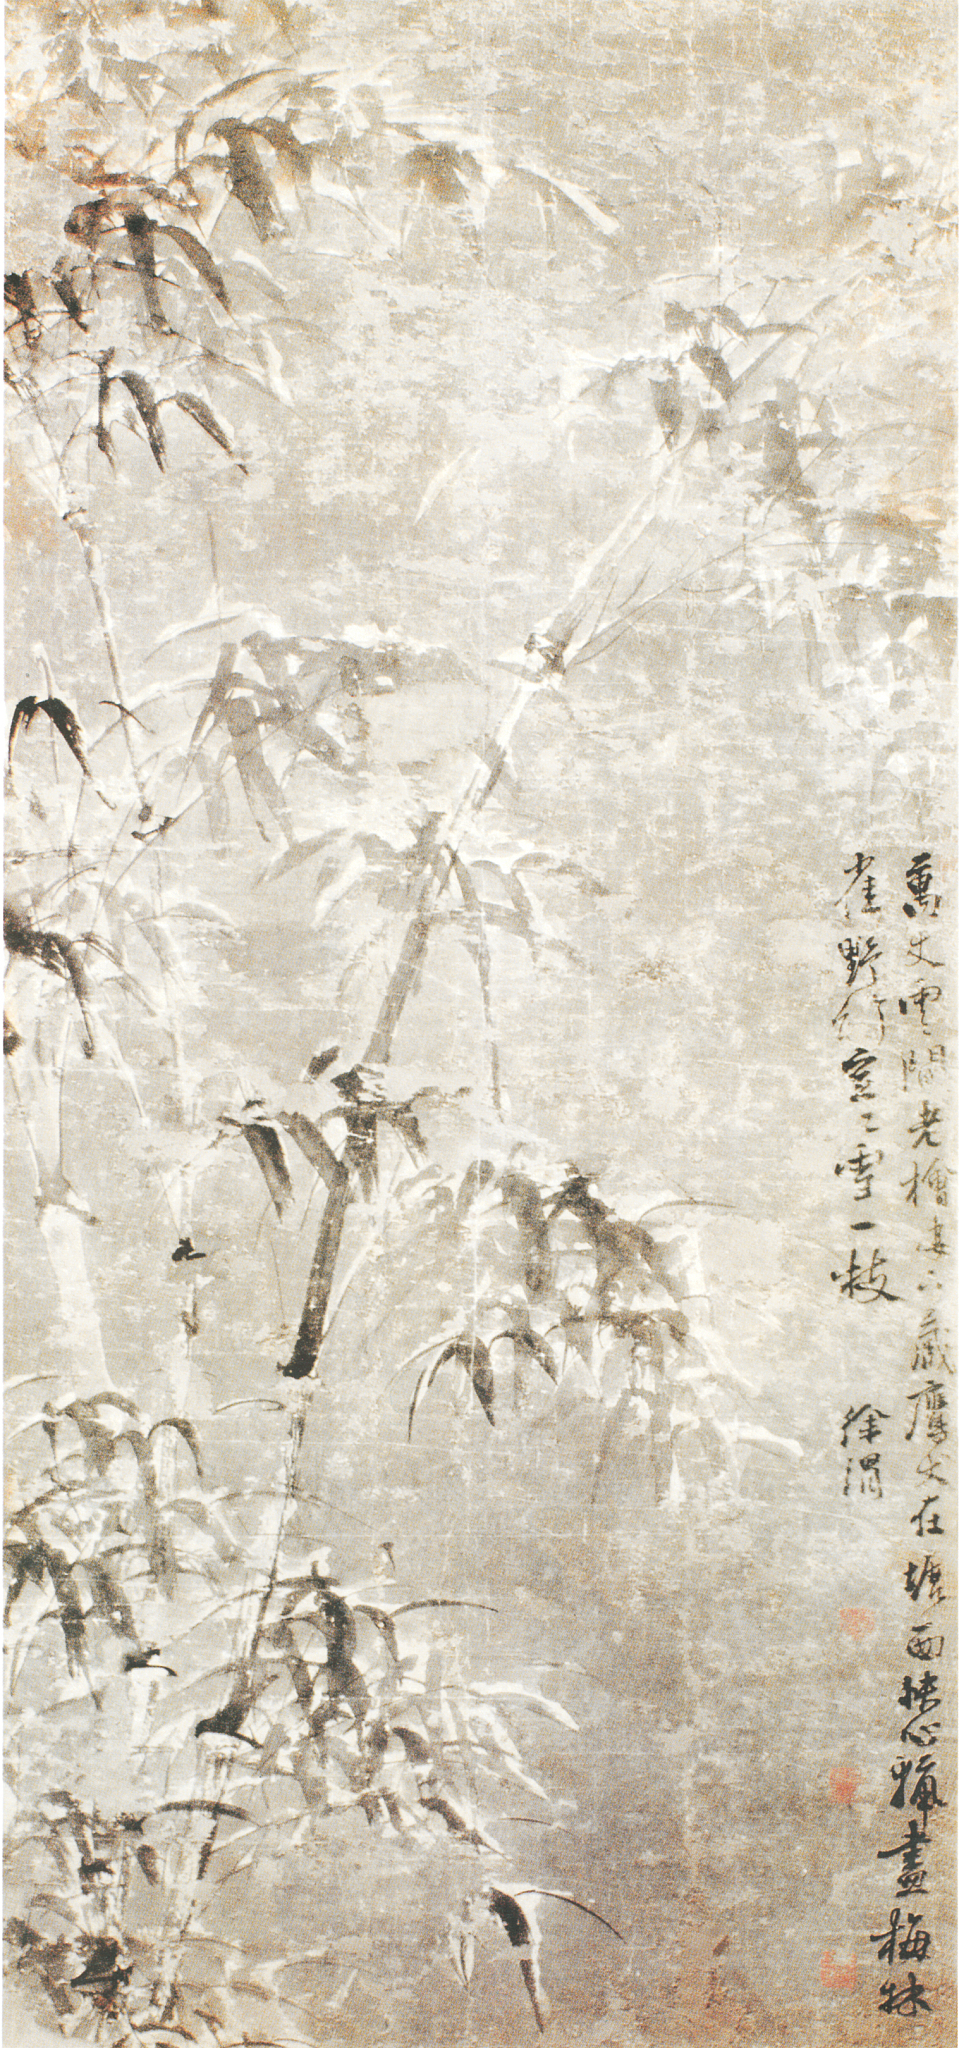 萬丈雲間老檜萋下藏鷹犬在塘西快心獵盡梅林
雀野竹空空雪一枝
徐渭